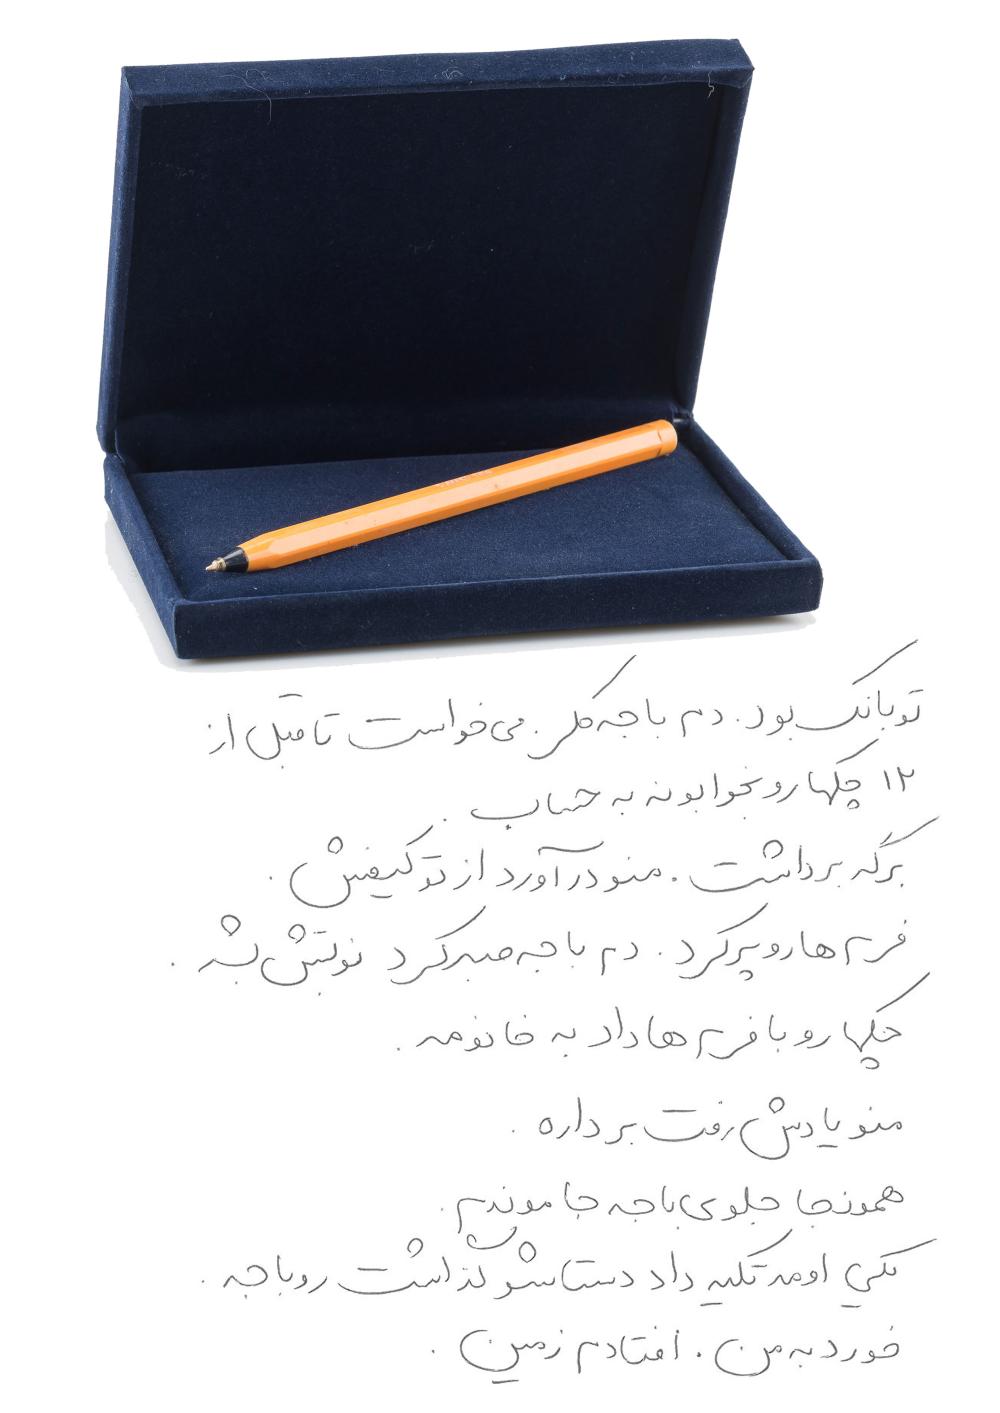 تو بانک بود. دم باجه ملی. می‌خواست تا قبل از
۱۲ چکها رو بخوابونه به حساب.
برگه برداشت. منو درآورد از تو کیفش.
فرم ها رو پر کرد. دم باجه صبر کرد نوبتش بشه.
چکها رو با فرم ها داد به خانومه.
منو یادش رفت برداره.
همونجا جلوی باجه جا موندم.
یکی اومد تکیه داد دستاشو گذاشت رو باجه.
خورد به من. افتادم زمین.